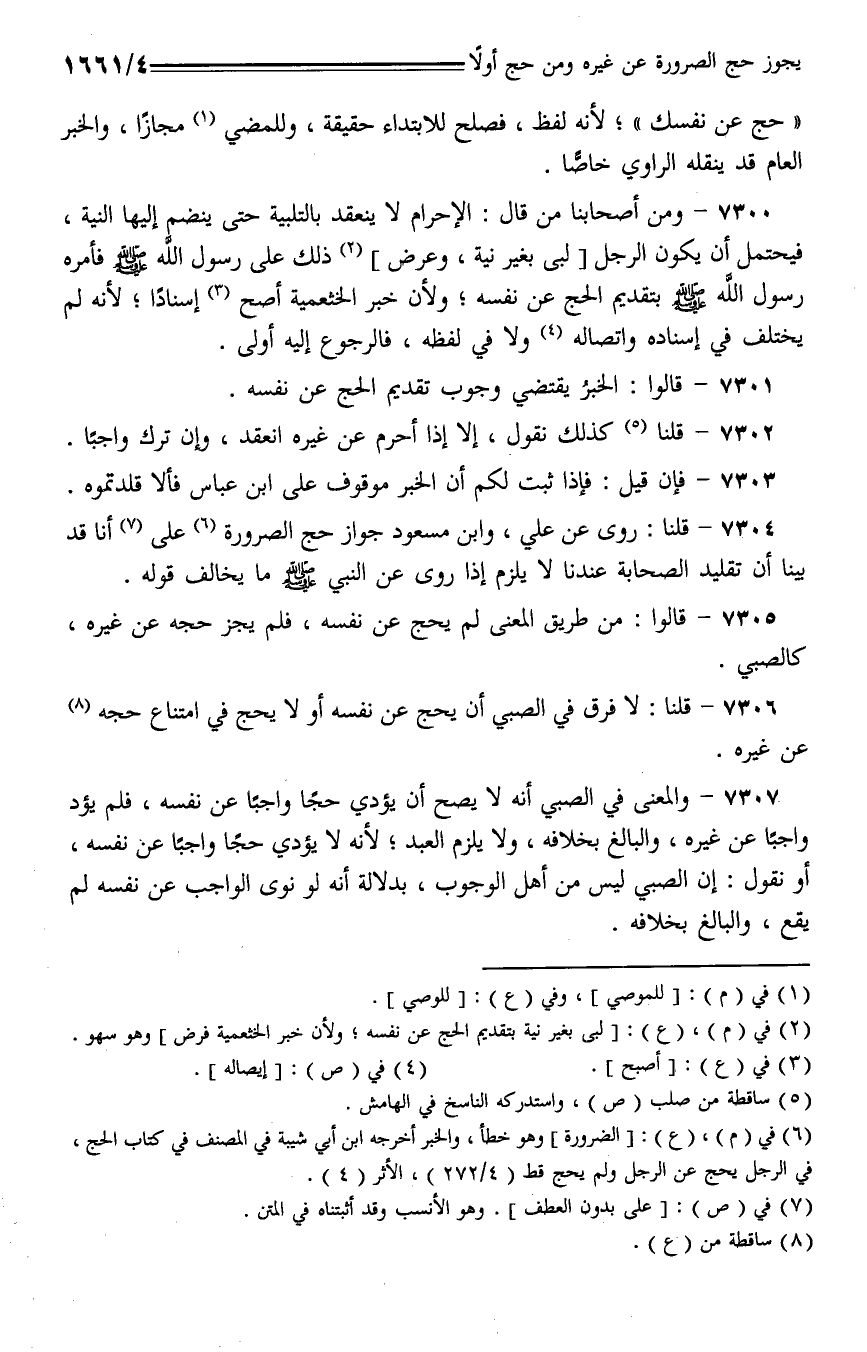 يجوز حج الصرورة عن غيره ومن حج أولًا ١٦٦١/٤
« حج عن نفسك » ؛ لأنه لفظ ، فصلح للابتداء حقيقة ، وللمضي (١) مجازًا ، والخبر
العام قد ينقله الراوي خاصًّا .
٧٣٠٠ – ومن أصحابنا من قال : الإحرام لا ينعقد بالتلبية حتى ينضم إليها النية ،
فيحتمل أن يكون الرجل [ لبى بغير نية ، وعرض ] (٢) ذلك على رسول اللَّه ﷺ فأمره
رسول اللَّه ﷺ بتقديم الحج عن نفسه ؛ ولأن خبر الخثعمية أصح (٣) إسنادًا ؛ لأنه لم
يختلف في إسناده واتصاله (٤) ولا في لفظه ، فالرجوع إليه أولى .
٧٣٠١ – قالوا : الخبرُ يقتضي وجوب تقديم الحج عن نفسه .
٧٣٠٢ – قلنا (٥) كذلك نقول ، إلا إذا أحرم عن غيره انعقد ، وإن ترك واجبًا .
٧٣٠٣ – فإن قيل : فإذا ثبت لكم أن الخبر موقوف على ابن عباس فألا قلدتموه .
٧٣٠٤ – قلنا : روى عن علي ، وابن مسعود جواز حج الصرورة (٦) على (٧) أنا قد
بينا أن تقليد الصحابة عندنا لا يلزم إذا روى عن النبي ﷺ ما يخالف قوله .
٧٣٠٥ – قالوا : من طريق المعنى لم يحج عن نفسه ، فلم يجز حجه عن غيره ،
كالصبي .
٧٣٠٦ – قلنا : لا فرق في الصبي أن يحج عن نفسه أو لا يحج في امتناع حجه (٨)
عن غيره .
٧٣٠٧ – والمعنى في الصبي أنه لا يصح أن يؤدي حجًا واجبًا عن نفسه ، فلم يؤد
واجبًا عن غيره ، والبالغ بخلافه ، ولا يلزم العبد ؛ لأنه لا يؤدي حجًا واجبًا عن نفسه ،
أو نقول : إن الصبي ليس من أهل الوجوب ، بدلالة أنه لو نوى الواجب عن نفسه لم
يقع ، والبالغ بخلافه .
(١) في ( م ) : [ للموصي ] ، وفي ( ع ) : [ للوصي ] .
(٢) في ( م ) ، ( ع ) : [ لبى بغير نية بتقديم الحج عن نفسه ؛ ولأن خبر الخثعمية فرض ] وهو سهو .
(٣) في ( ع ) : [ أصبح ] . (٤) في ( ص ) : [ إيصاله ] .
(٥) ساقطة من صلب ( ص ) ، واستدركه الناسخ في الهامش .
(٦) في ( م ) ، ( ع ) : [ الضرورة ] وهو خطأ ، والخبر أخرجه ابن أبي شيبة في المصنف في كتاب الحج ،
في الرجل يحج عن الرجل ولم يحج قط ( ٢٧٢/٤ ) ، الأثر ( ٤ ) .
(٧) في ( ص ) : [ على بدون العطف ] . وهو الأنسب وقد أثبتناه في المتن .
(٨) ساقطة من ( ع ) .